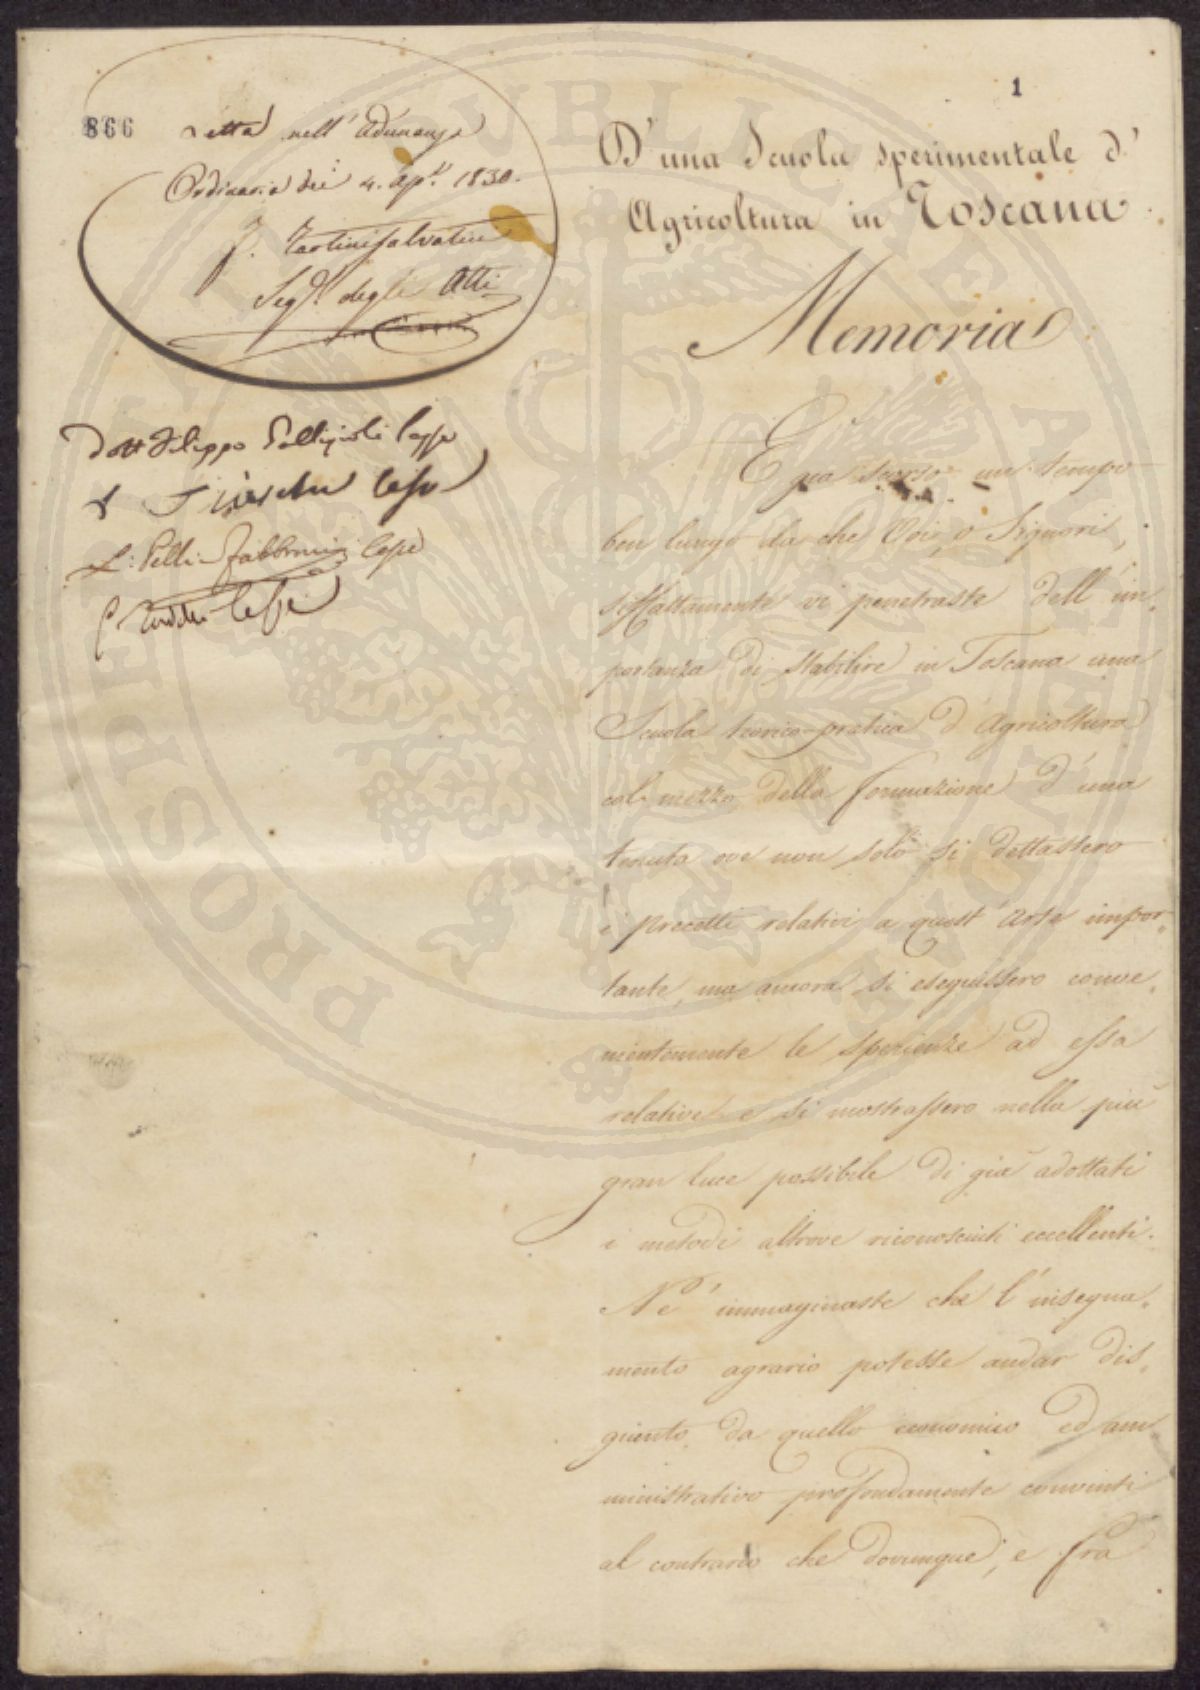 866
1
Letta nell'Adunanza
Ordinaria dei 4. Ap.le 1830.
F. Tartini Salvatici
Seg.o degli Atti
Dott Filippo Gallizioli Lesse
Lesse
L: Pelli-Fabbroni Lesse
Lesse
D'una Scuola sperimentale d'
Agricoltura in Toscana.
Memoria
È gia scorso un tempo
ben lungo da che Voi, o Signori,
siffattamente vi penetraste dell'im„
portanza di stabilire in Toscana una
Scuola teorico-pratica d'Agricoltura
col mezzo della formazione d'una
tenuta ove non solo si dettassero
i precetti relativi a quest'Arte impor„
tante, ma ancora si eseguissero conve„
nientemente le sperienze ad essa
relative e si mostrassero nella più
gran luce possibile di già adottati
i metodi altrove riconosciuti eccellenti.
Nè immaginaste che l'insegna„
mento agrario potesse andar dis„
giunto da quello economico ed am„
ministrativo profondamente convinti
al contrario che dovunque, e fra
PROSPERITATI PUBLICAE AUGENDAE